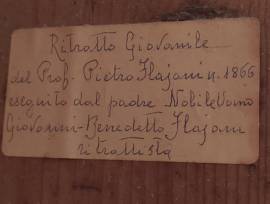 Ritratto Giovanile
del Prof. Pietro Flajani n. 1866
eseguito dal padre Nobile Uomo
Giovanni-Benedetto Flajani
ritrattista